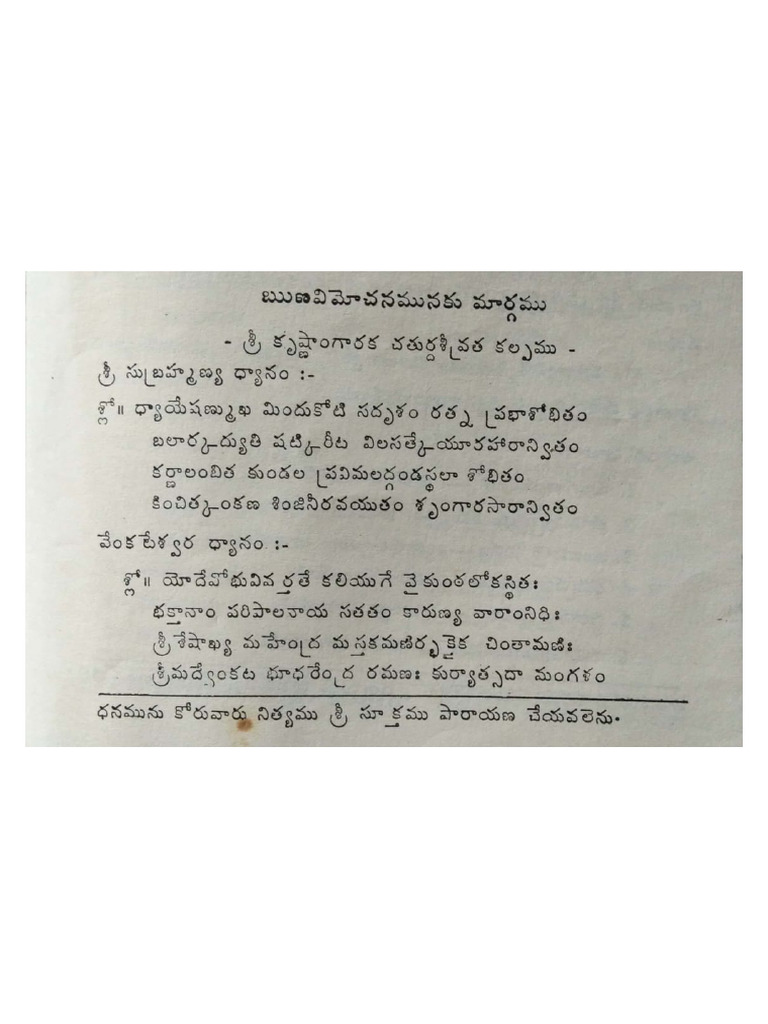 ఋణవిమోచనమునకు మార్గము
- శ్రీ కృష్ణాంగారక చతుర్దశీవ్రత కల్పము -
శ్రీ సుబ్రహ్మణ్య ధ్యానం :-
శ్లో॥ ధ్యాయేషణ్ముఖ మిందుకోటి సదృశం రత్న ప్రభాశోభితం
బలార్కద్యుతి షట్కిరీట విలసత్కేయూరహారాన్వితం
కర్ణాలంబిత కుండల ప్రవిమలద్గండస్థలా శోభితం
కించిత్కంకణ శింజినీరవయుతం శృంగారసారాన్వితం
వేంకటేశ్వర ధ్యానం :-
శ్లో॥ యోదేవోభువివర్తతే కలియుగే వైకుంఠలోకస్థితః
భక్తానాం పరిపాలనాయ సతతం కారుణ్య వారాంనిధిః
శ్రీశేషాఖ్య మహేంద్ర మస్తకమణిర్భక్తైక చింతామణిః
శ్రీమద్వేంకట భూధరేంద్ర రమణః కుర్యాత్సదా మంగళం
ధనమును కోరువారు నిత్యము శ్రీ సూక్తము పారాయణ చేయవలెను.